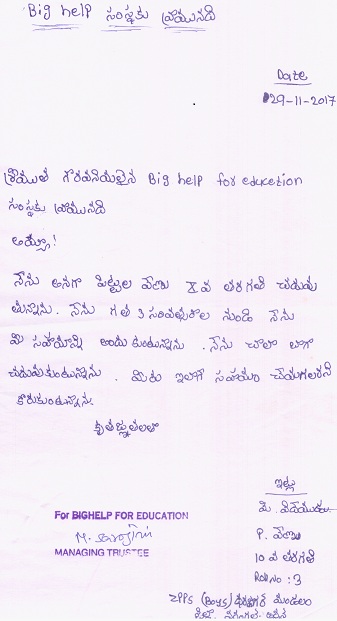 Big help సంస్థకు వ్రాయునది
Date
29-11-2017
శ్రీయుత గౌరవనియులైన Big help for education
సంస్థకు వ్రాయునది
అయ్యా!
నేను అనగా పిట్టల వేణు X వ తరగతి చదువు
తున్నాను. నేను గత 3 సంవత్సరాల నుండి నేను
మీ సహాయాన్ని అందు కుంటున్నాను. నేను చాలా బాగా
చదువుకుంటున్నాను. మీరు ఇలాగే సహాయం చేయగలరని
కోరుకుంటున్నాను.
కృతజ్ఞతలతో
ఇట్లు
మీ విధేయుడు
P. వేణు
10 వ తరగతి
Roll No : 3
ZPPS (Boys)
For BIGHELP FOR EDUCATION
MANAGING TRUSTEE